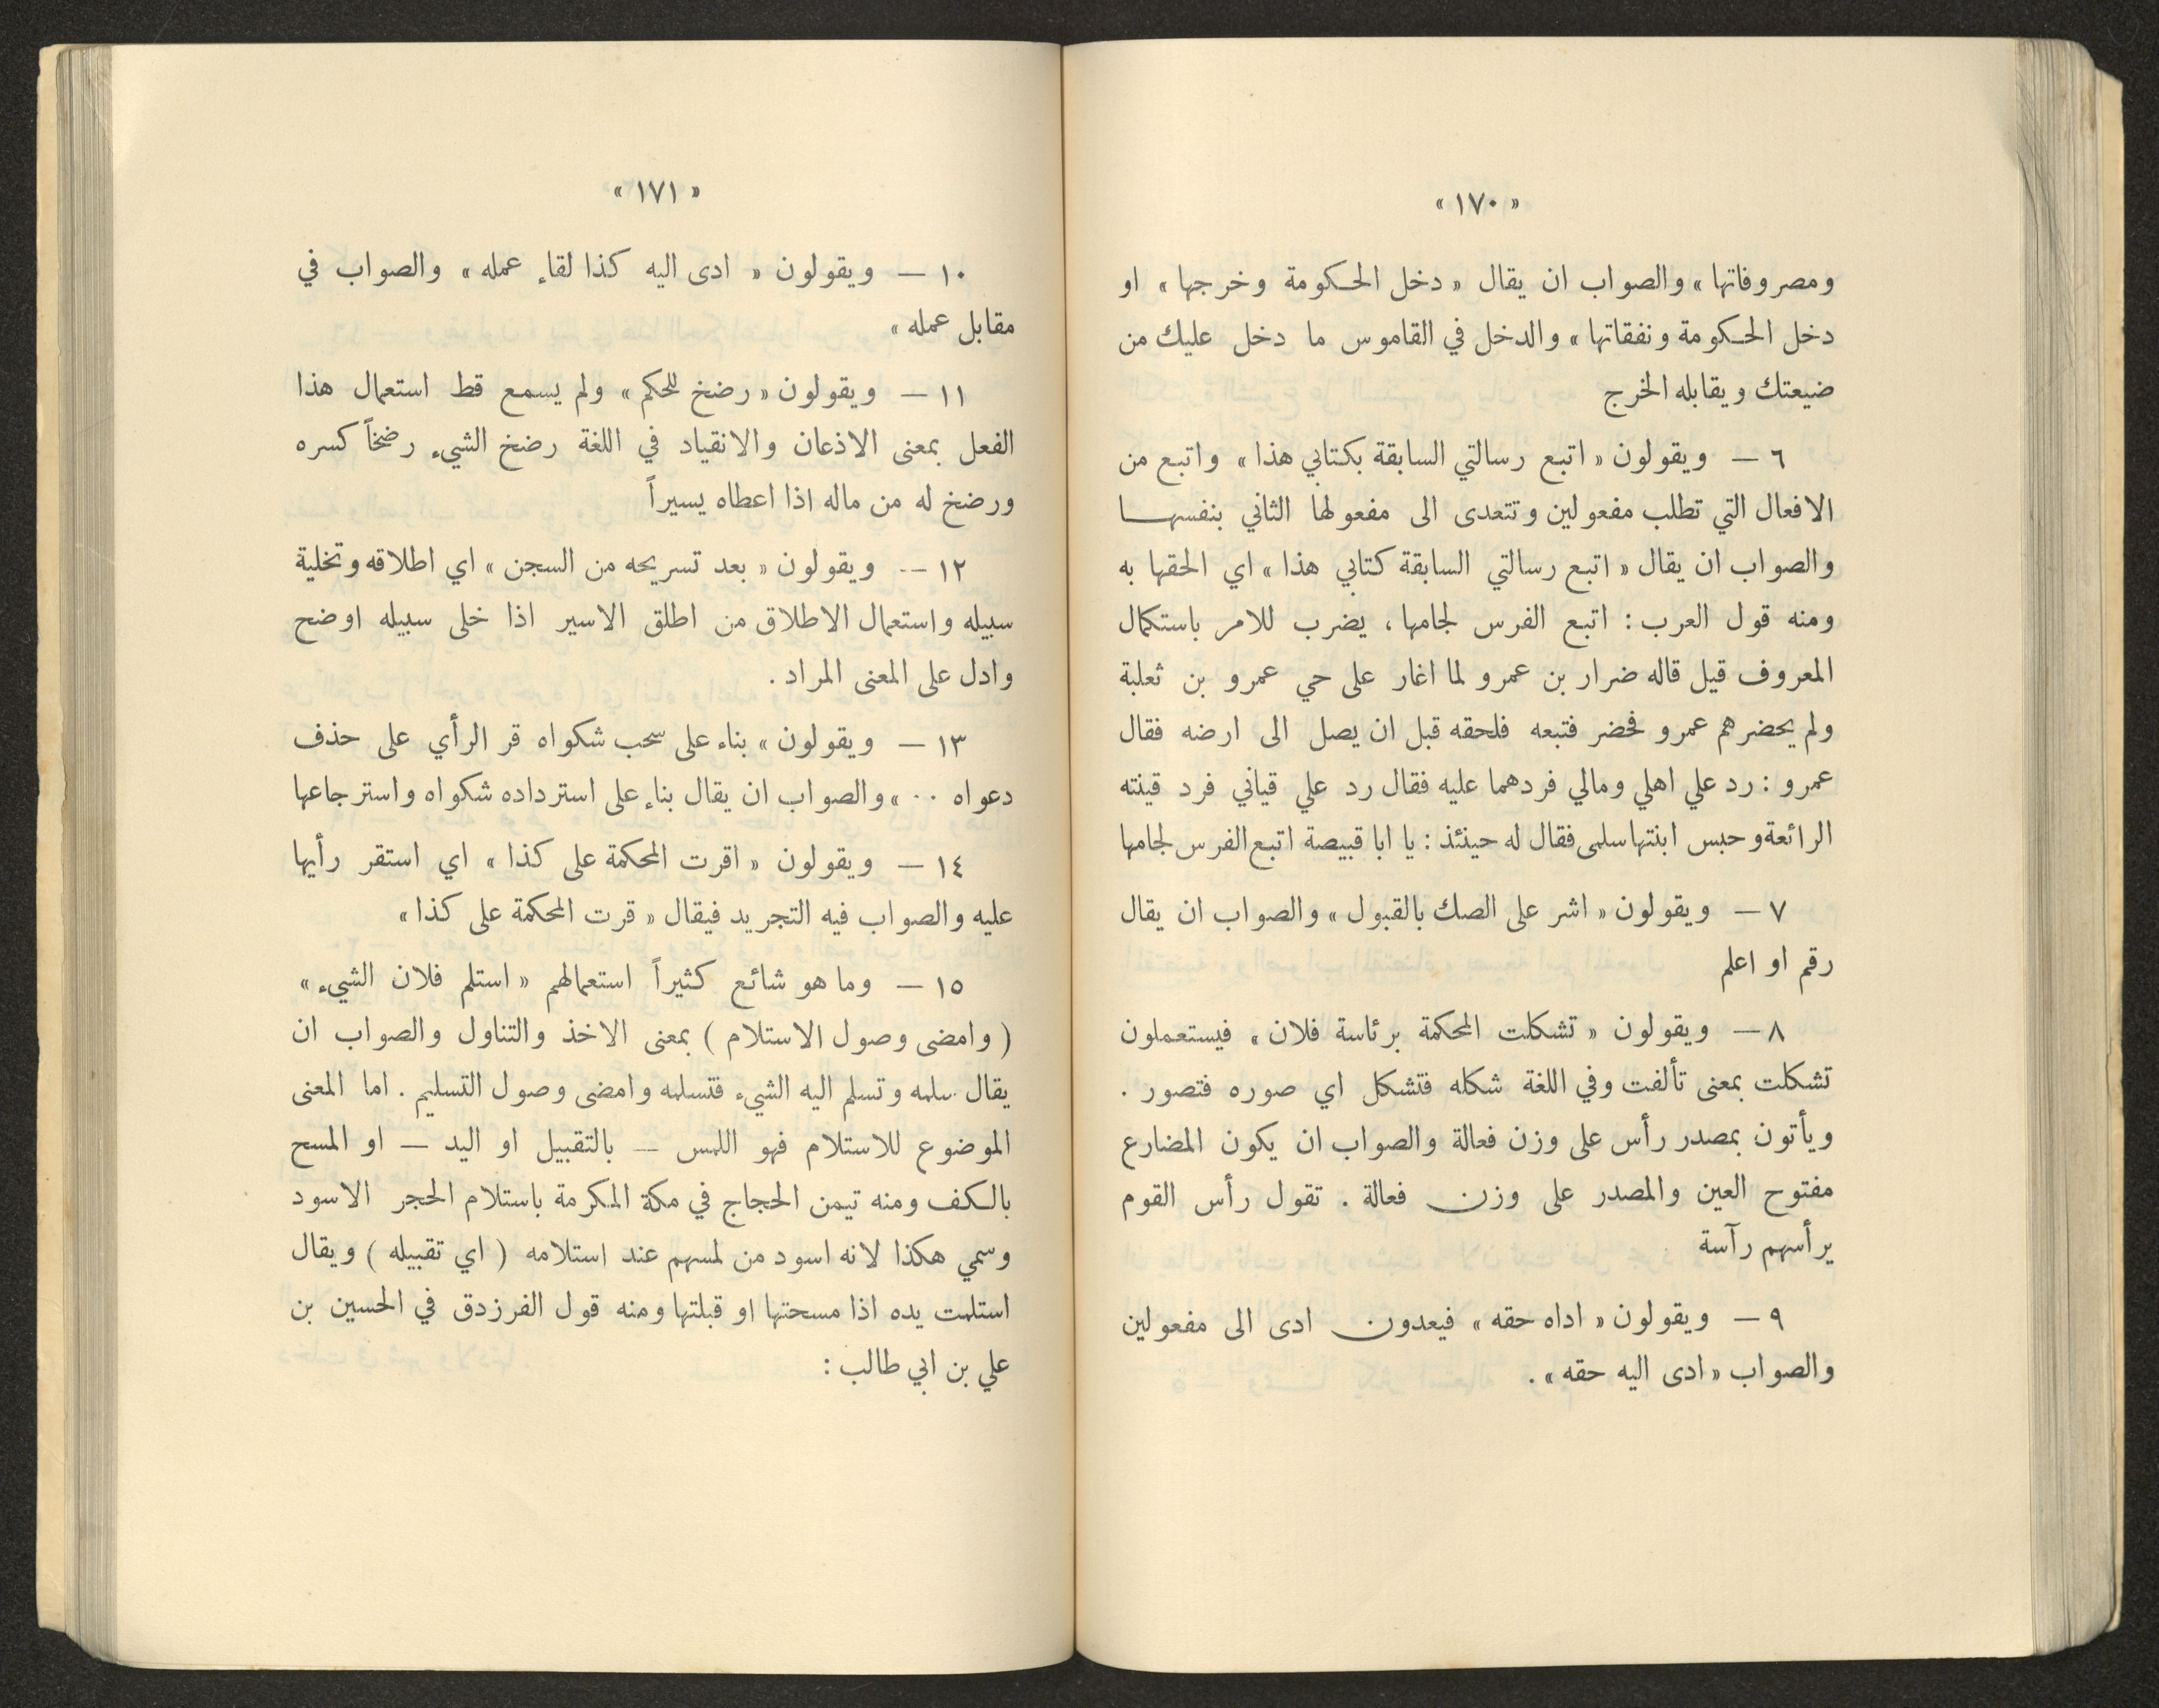 « ١٧٠ »
ومصروفاتها » والصواب ان يقال « دخل الحكومة وخرجها » او
دخل الحكومة ونفقاتها » والدخل في القاموس ما دخل عليك من
ضيعتك ويقابله الخرج
٦ — ويقولون « اتبع رسالتي السابقة بكتابي هذا » واتبع من
الافعال التي تطلب مفعولين وتتعدى الى مفعولها الثاني بنفسها
والصواب ان يقال « اتبع رسالتي السابقة كتابي هذا » اي الحقها به
ومنه قول العرب : اتبع الفرس لجامها ، يضرب للامر باستكمال
المعروف قيل قاله ضرار بن عمرو لما اغار على حي عمرو بن ثعلبة
ولم يحضرهم عمرو فحضر فتبعه فلحقه قبل ان يصل الى ارضه فقال
عمرو : رد علي اهلي ومالي فردهما عليه فقال رد علي قياني فرد قينته
الرائعة وحبس ابنتها سلمى فقال له حينئذ : يا ابا قبيصة اتبع الفرس لجامها
٧ — ويقولون « اشر على الصك بالقبول » والصواب ان يقال
رقم او اعلم
٨ — ويقولون « تشكلت المحكمة برئاسة فلان » فيستعملون
تشكلت بمعنى تألفت وفي اللغة شكله فتشكل اي صوره فتصور .
ويأتون بمصدر رأس على وزن فعالة والصواب ان يكون المضارع
مفتوح العين والمصدر على وزن فعالة . تقول رأس القوم
يرأسهم رآسة
٩ — ويقولون « اداه حقه » فيعدون ادى الى مفعولين
والصواب « ادى اليه حقه » .
« ١٧١ »
١٠ — ويقولون « ادى اليه كذا لقاء عمله » والصواب في
مقابل عمله »
١١ — ويقولون « رضخ للحكم » ولم يسمع قط استعمال هذا
الفعل بمعنى الاذعان والانقياد في اللغة رضخ الشيء رضخاً كسره
ورضخ له من ماله اذا اعطاه يسيراً
١٢ — ويقولون « بعد تسريحه من السجن » اي اطلاقه وتخلية
سبيله واستعمال الاطلاق من اطلق الاسير اذا خلى سبيله اوضح
وادل على المعنى المراد .
١٣ — ويقولون » بناء على سحب شكواه قر الرأي على حذف
دعواه ٠٠ » والصواب ان يقال بناء على استرداده شكواه واسترجاعها
١٤ — ويقولون « اقرت المحكمة على كذا » اي استقر رأيها
عليه والصواب فيه التجريد فيقال « قرت المحكمة على كذا »
١٥ — وما هو شائع كثيراً استعمالهم « استلم فلان الشيء »
( وامضى وصول الاستلام ) بمعنى الاخذ والتناول والصواب ان
يقال سلمه وتسلم اليه الشيء فتسلمه وامضى وصول التسليم . اما المعنى
الموضوع للاستلام فهو اللمس — بالتقبيل او اليد — او المسح
بالكف ومنه تيمن الحجاج في مكة المكرمة باستلام الحجر الاسود
وسمي هكذا لانه اسود من لمسهم عند استلامه ( اي تقبيله ) ويقال
استلمت يده اذا مسحتها او قبلتها ومنه قول الفرزدق في الحسين بن
علي بن ابي طالب :